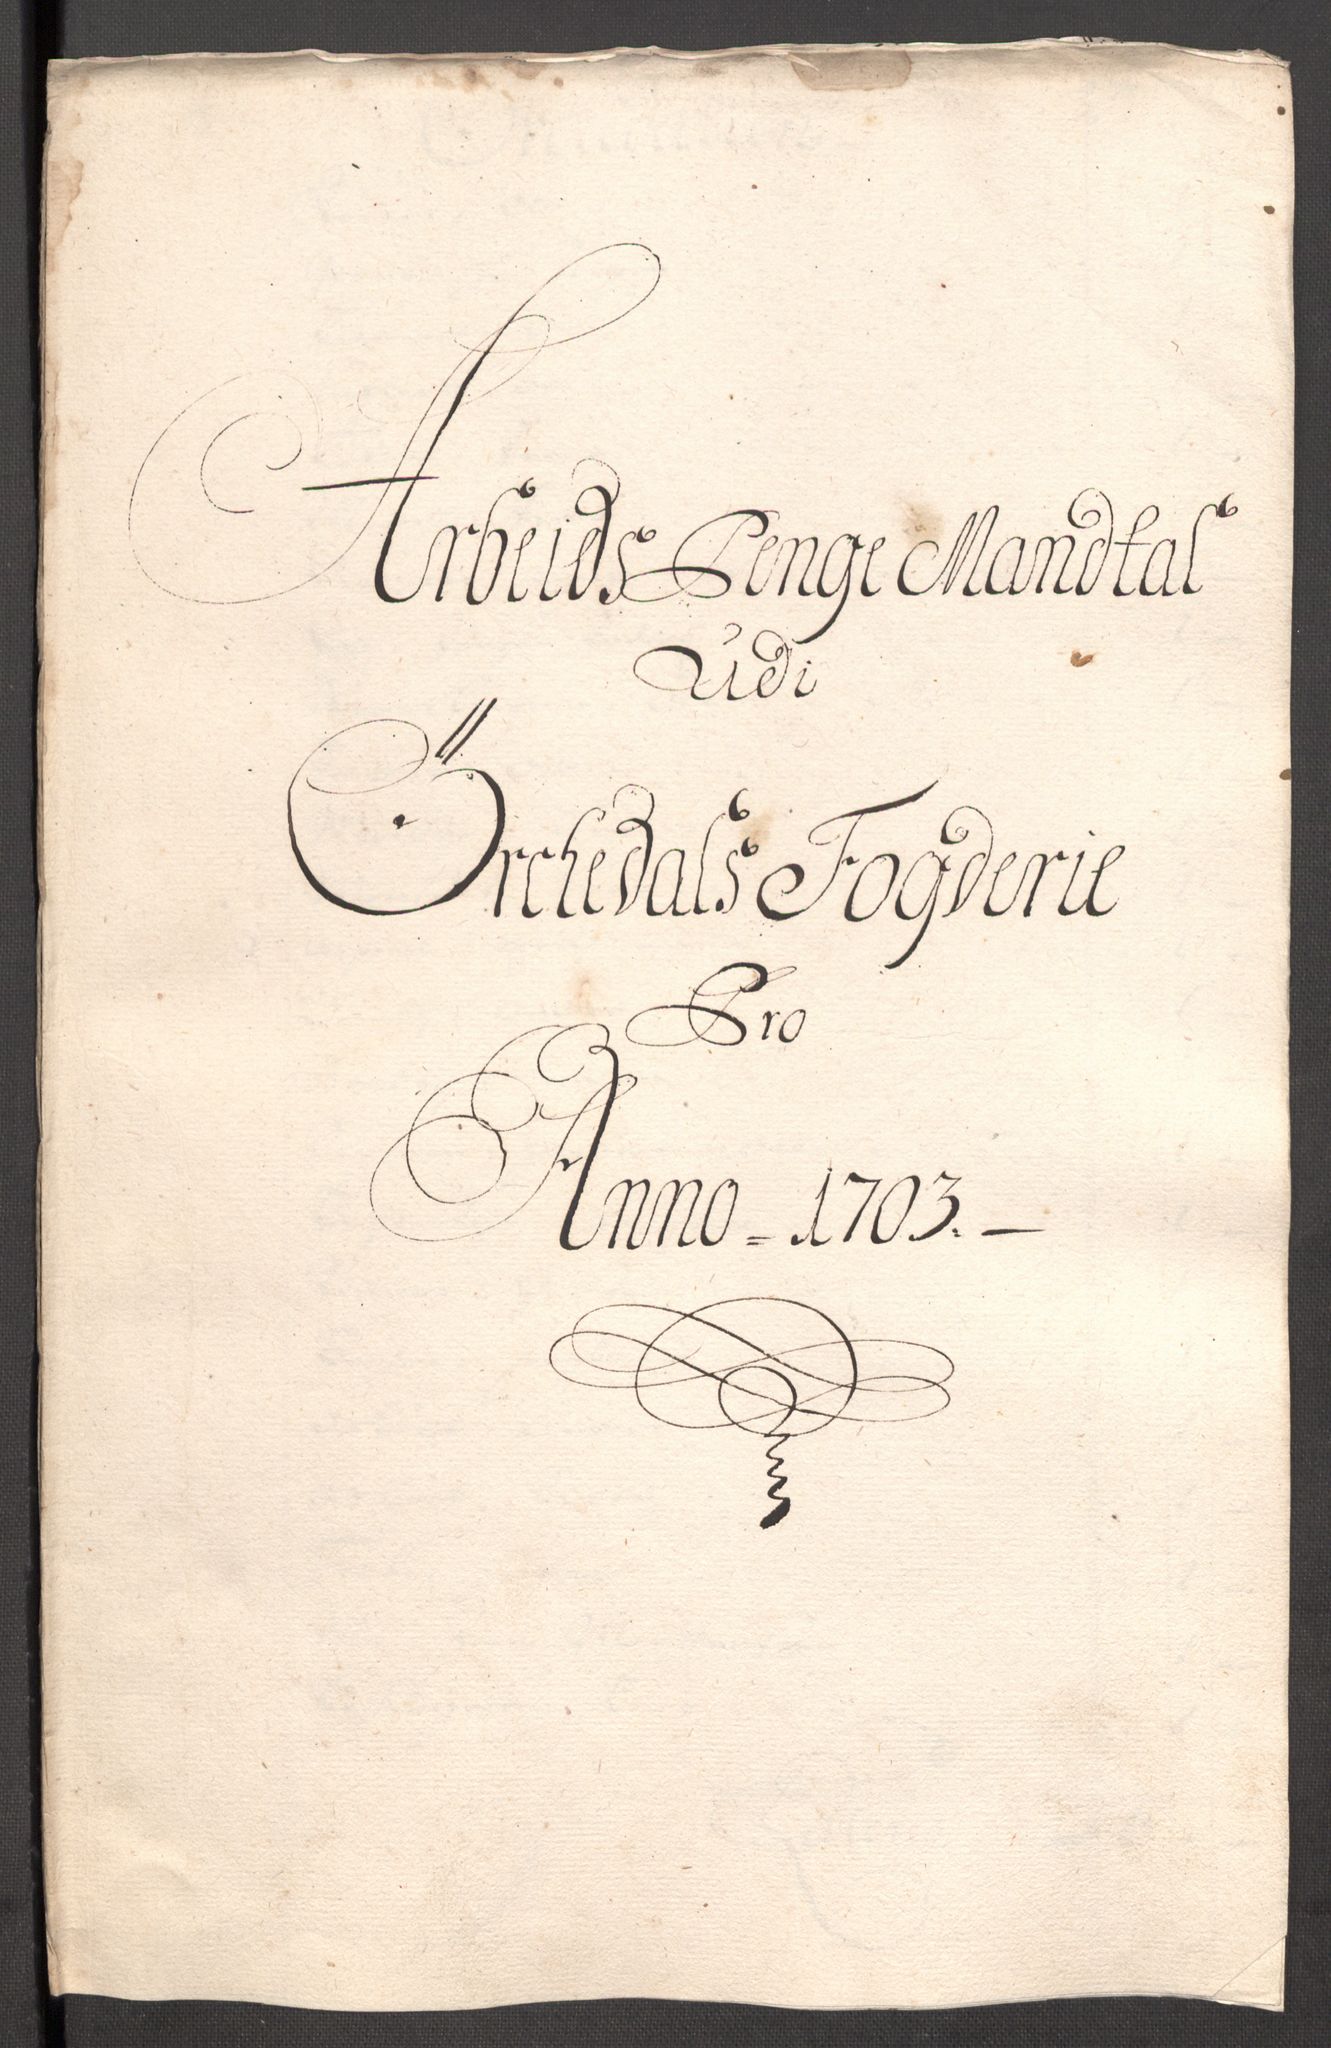 Arbeids Penge Mandtal
Udi
Örchedals Fogderie
Pro
Anno = 1703. —